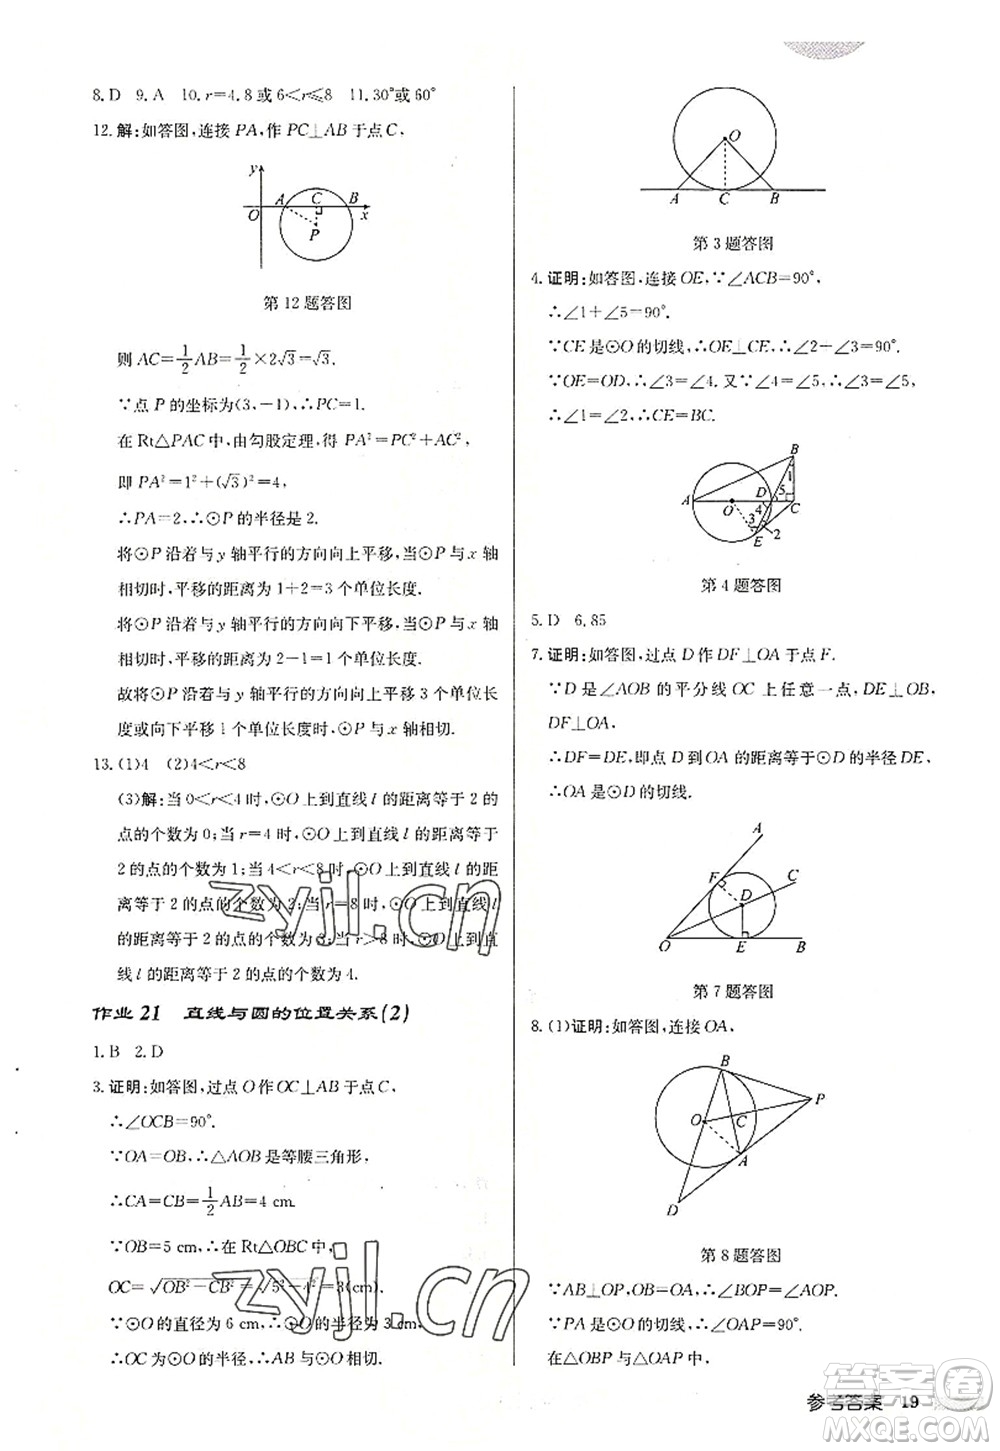 8. D　9. A　10. r=4.8 或 6<r≤8　11. 30°或 60°
12. 解:如答图,连接 PA,作 PC⊥AB 于点 C,
y
A C B
O x
P
第 12 题答图
则 AC=1/2AB=1/2×2√3=√3.
∵点 P 的坐标为(3,-1),∴PC=1.
在 Rt△PAC 中,由勾股定理,得 PA²=PC²+AC²,
即 PA²=1²+(√3)²=4,
∴PA=2,∴⊙P 的半径是 2.
将⊙P 沿着与 y 轴平行的方向向上平移,当⊙P 与 x 轴
相切时,平移的距离为 1+2=3 个单位长度.
将⊙P 沿着与 y 轴平行的方向向下平移,当⊙P 与 x 轴
相切时,平移的距离为 2-1=1 个单位长度.
故将⊙P 沿着与 y 轴平行的方向向上平移 3 个单位长
度或向下平移 1 个单位长度时,⊙P 与 x 轴相切.
13. (1)4　(2)4<r<8
(3)解:当 0<r<4 时,⊙O 上到直线 l 的距离等于 2 的
点的个数为 0;当 r=4 时,⊙O 上到直线 l 的距离等于
2 的点的个数为 1;当 4<r<8 时,⊙O 上到直线 l 的距
离等于 2 的点的个数为 2;当 r=8 时,⊙O 上到直线 l
的距离等于 2 的点的个数为 3;当 r>8 时,⊙O 上到直
线 l 的距离等于 2 的点的个数为 4.
作业 21　直线与圆的位置关系(2)
1. B　2. D
3. 证明:如答图,过点 O 作 OC⊥AB 于点 C,
∴∠OCB=90°.
∵OA=OB,∴△AOB 是等腰三角形,
∴CA=CB=1/2AB=4 cm.
∵OB=5 cm,∴在 Rt△OBC 中,
OC=√(OB²-CB²)=√(5²-4²)=3(cm).
∵⊙O 的直径为 6 cm,∴⊙O 的半径为 3 cm,
∴OC 为⊙O 的半径,∴AB 与⊙O 相切.
O
A C B
第 3 题答图
4. 证明:如答图,连接 OE,∵∠ACB=90°,
∴∠1+∠5=90°.
∵CE 是⊙O 的切线,∴OE⊥CE,∴∠2+∠3=90°.
∵OE=OD,∴∠3=∠4. 又∵∠4=∠5,∴∠3=∠5,
∴∠1=∠2,∴CE=BC.
B
1
A O D 5 C
4
3 2
E
第 4 题答图
5. D　6. 85
7. 证明:如答图,过点 D 作 DF⊥OA 于点 F.
∵D 是∠AOB 的平分线 OC 上任意一点,DE⊥OB,
DF⊥OA,
∴DF=DE,即点 D 到 OA 的距离等于⊙D 的半径 DE,
∴OA 是⊙D 的切线.
A
F C
D
O E B
第 7 题答图
8. (1)证明:如答图,连接 OA,
B
P
O C
A
D
第 8 题答图
∵AB⊥OP,OB=OA,∴∠BOP=∠AOP.
∵PA 是⊙O 的切线,∴∠OAP=90°.
在△OBP 与△OAP 中,
参考答案　19
zyjl.cn
zyjl.cn
答案圈
MXQE.COM